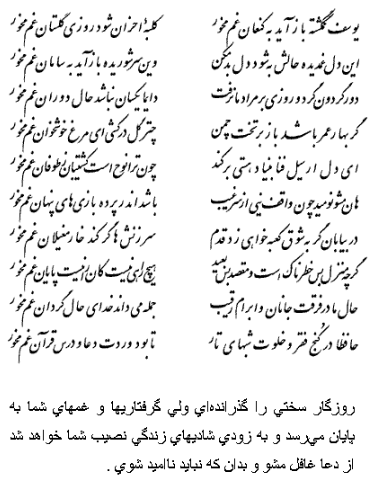 یوسف گمگشته باز آید به کنعان غم مخور کلبهٔ احزان شود روزی گلستان غم مخور
این دل غمدیده حالش به شود دل بد مکن وین سر شوریده باز آید به سامان غم مخور
دور گردون گر دو روزی بر مراد ما نرفت دایما یکسان نباشد حال دوران غم مخور
گر بهار عمر باشد باز بر تخت چمن چتر گل در سر کشی ای مرغ خوشخوان غم مخور
ای دل ار سیل فنا بنیاد هستی بر کند چون ترا نوح است کشتیبان ز طوفان غم مخور
هان مشو نومید چون واقف نئی از سر غیب باشد اندر پرده بازی‌های پنهان غم مخور
در بیابان گر به شوق کعبه خواهی زد قدم سرزنش‌ها گر کند خار مغیلان غم مخور
گرچه منزل بس خطرناک است و مقصد بس بعید هیچ راهی نیست کان را نیست پایان غم مخور
حال ما در فرقت جانان و ابرام رقیب جمله می داند خدای حال گردان غم مخور
حافظا در کنج فقر و خلوت شبهای تار تا بود وردت دعا و درس قرآن غم مخور
روزگار سختي را گذرانده‌اي ولي گرفتاريها و غمهاي شما به
پايان مي‌رسد و به زودي شاديهاي زندگي نصيب شما خواهد شد
از دعا غافل مشو و بدان که نبايد نااميد شوي .